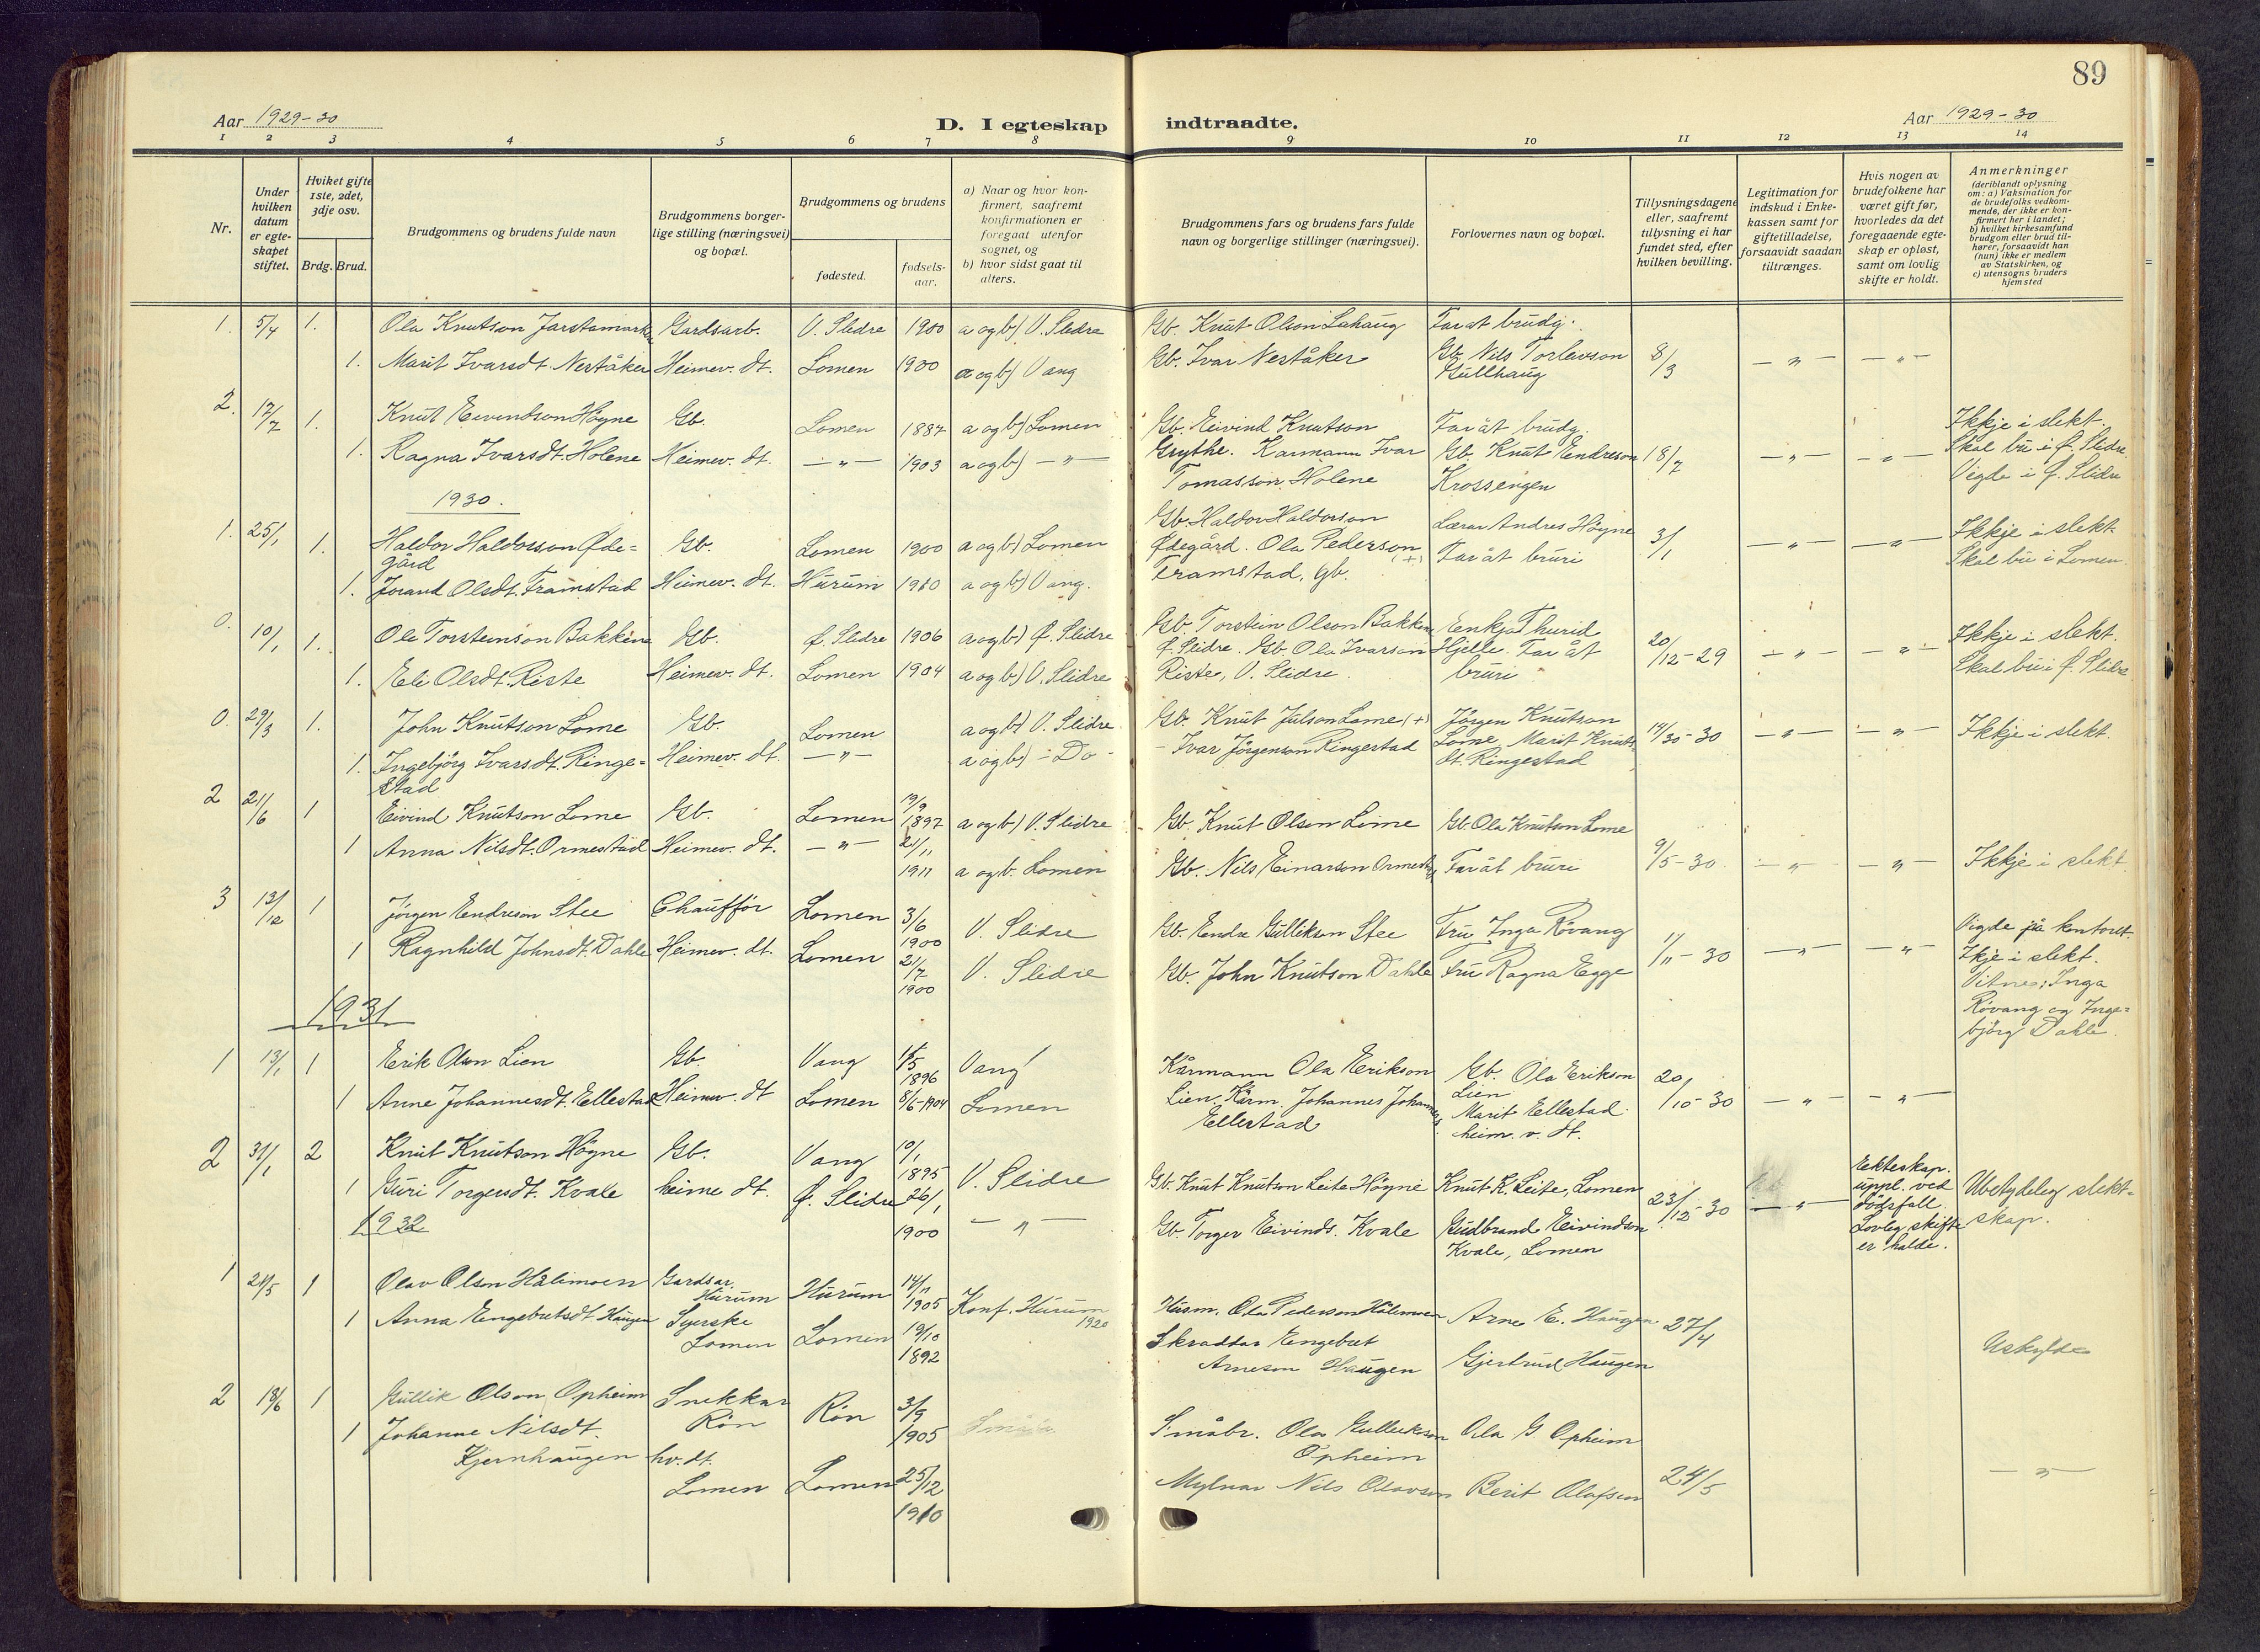 89
Aar 1929-30
D. I egteskap indtraadte.
Aar 1929-30
1 2 3 4 5 6 7 8 9 10 11 12 13 14
Nr.
Under hvilken datum er egteskapet stiftet.
Hviket gifte 1ste, 2det, 3dje osv.
Brdg. Brud.
Brudgommens og brudens fulde navn
Brudgommens borgerlige stilling (næringsvei) og bopæl.
Brudgommens og brudens
fødested.
fødselsaar.
a) Naar og hvor konfirmert, saafremt konfirmationen er foregaat utenfor sognet, og
b) hvor sidst gaat til alters.
Brudgommens fars og brudens fars fulde navn og borgerlige stillinger (næringsvei).
Forlovernes navn og bopæl.
Tillysningsdagene eller, saafremt tillysning ei har fundet sted, efter hvilken bevilling.
Legitimation for indskud i Enkekassen samt for giftetilladelse, forsaavidt saadan tiltrænges.
Hvis nogen av brudefolkene har været gift før, hvorledes da det foregaaende egteskap er opløst, samt om lovlig skifte er holdt.
Anmerkninger
(deriblandt oplysning om: a) Vaksination for de brudefolks vedkommende, der ikke er konfirmert her i landet; b) hvilket kirkesamfund brudgom eller brud tilhører, forsaavidt han (hun) ikke er medlem av Statskirken, og c) utensogns bruders hjemsted
1. 5/4 1. Ola Knutson Jarstamarken Gardsarb. V. Slidre 1900 a og b) V. Slidre Gb. Knut Olson Lahaug Far åt brudg.
1. Marit Ivarsdt. Neståker Heimev. dt. Lomen 1900 a og b) Vang Gb. Ivar Neståker Gb. Nils Torleivson Gullhaug 8/3 — " — — " —
2. 17/7 1. Knut Eivendson Høgne Gb. Lomen 1887 a og b) Lomen Gb. Eivind Knutson Far åt brudg. Ikkje i slekt.
1. Ragna Ivarsdt. Holene Heimev. dt. — " — 1903 a og b) — " — Grythe. Karmann Ivar Tomasson Holene Gb. Knut Endreson Krossengen 18/7 — " — — " — Skal bu i Ø. Slidre Vigde i Ø. Slidre
1930.
1. 25/1 1. Haldor Haldorsson Ødegård Gb. Lomen 1900 a og b) Lomen Gb. Haldor Haldorson Ødegård. Lærar Andres Høgne 3/1 — " — — " — Ikkje i slekt
1. Jorand Olsdt. Framstad Heimev. dt. Hurum 1910 a og b) Vang. Ola Pederson (+) Framstad, gb. Far åt bruri Skal bu i Lomen.
0. 10/1 1. Ole Torsteinson Bakkene Gb. Ø. Slidre 1906 a og b) Ø. Slidre Gb. Torstein Olson Bakken Ø. Slidre. Eenkja Thurid Hjelle. 20/12-29 — " — — " — Ikkje i slekt.
1. Eli Olsdt. Riste Heimev. dt. Lomen 1904 a og b) V. Slidre Gb. Ola Ivarson Riste, V. Slidre. Far åt bruri Skal bu i Ø. Slidre
0. 29/3 1. John Knutson Lome Gb. Lomen a og b) V. Slidre Gb. Knut Julson Lome (+) Jørgen Knutson Lome 19/30-30 — " — — " — Ikkje i slekt.
1. Ingebjörg Ivarsdt. Ringestad Heimev. dt. — " — a og b) - Do - - Ivar Jörgenson Ringestad Marit Knutsdt. Ringestad
2 21/6 1 Eivind Knutson Lome Gb. Lomen 19/9 1897 a og b) V. Slidre Gb. Knut Olson Lome Gb. Ola Knutson Lome
1 Anna Nilsdt. Ormestad Heimev. dt. — " — 21/11 1911 a og b. Lomen Gb. Nils Einarson Ormestad Far åt bruri 9/5-30 — " — — " — Ikkje i slekt
3 13/12 1 Jörgen Endreson Stee Chauffør Lomen 3/6 1900 V. Slidre Gb. Endre Gulliksen Stee Fru Inga Rövang 17/11-30 — " — — " — Vigde på kontoret.
1 Ragnhild Johnsdt. Dahle Heimev. dt. Lomen 21/7 1900 V. Slidre Gb. John Knutson Dahle Fru Ragna Egge Ikje i slekt. Vitnes: Inga Rövang og Ingebjörg Dahle.
1931
1 13/1 1 Erik Olson Lien Gb. Vang 1/5 1896 Vang Kårmann Ola Erikson Lien, Gb. Ola Erikson Lien 20/10-30 — " — — " —
1 Anne Johannesdt. Ellestad Heimev. dt Lomen 8/6-1904 Lomen Kårm. Johannes Johannes. Ellestad Marit Ellestad heim. v. dt.
2 31/1 2 Knut Knutson Högne Gb. Vang 10/1 1895 V. Slidre Gb. Knut Knutson Leite Högne Knut K. Leite, Lomen 23/12-30 — " — Eekteskap. uppl. ved dödsfall. Lovleg skifte er halde. Ubetydeleg slektskap.
1 Guri Torgersdt. Kvale heime dt. Ø. Slidre 26/1 1900 — " — Gb. Torger Eivinds. Kvale Gudbrand Eivindson Kvale, Lomen
1932
1 21/5 1 Olav Olson Hålimoen Gardsar. Hurum Hurum 14/11 1905 Konf. Hurum 1920 Husm. Ola Pederson Hålimoen Arne E. Haugen 27/4
1 Anna Engebretsdt Haugen Syerske Lomen Lomen 19/10 1892 Skraddar Engebret Arneson Haugen Gjertrud Haugen Uskylde
2 18/6 1 Gullik Olson Opheim Snekkar Røn Røn 3/9 1905 Småbr. Ola Gulleikson Opheim Ola G Opheim
1 Johanne Nilsdt. Kjernhaugen hv. dt. Lomen Lomen 25/12 1910 Mylnar Nils Olavson Berit Olafsen 24/5 — " —